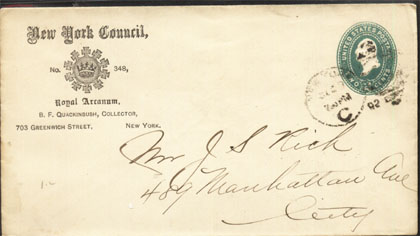 New York Council,
No. 348,
Royal Arcanum,
B. F. QUACKINBUSH, COLLECTOR,
703 GREENWICH STREET. NEW YORK.
UNITED STATES
C
Mr J S Rich
489 Manhattan Ave
City